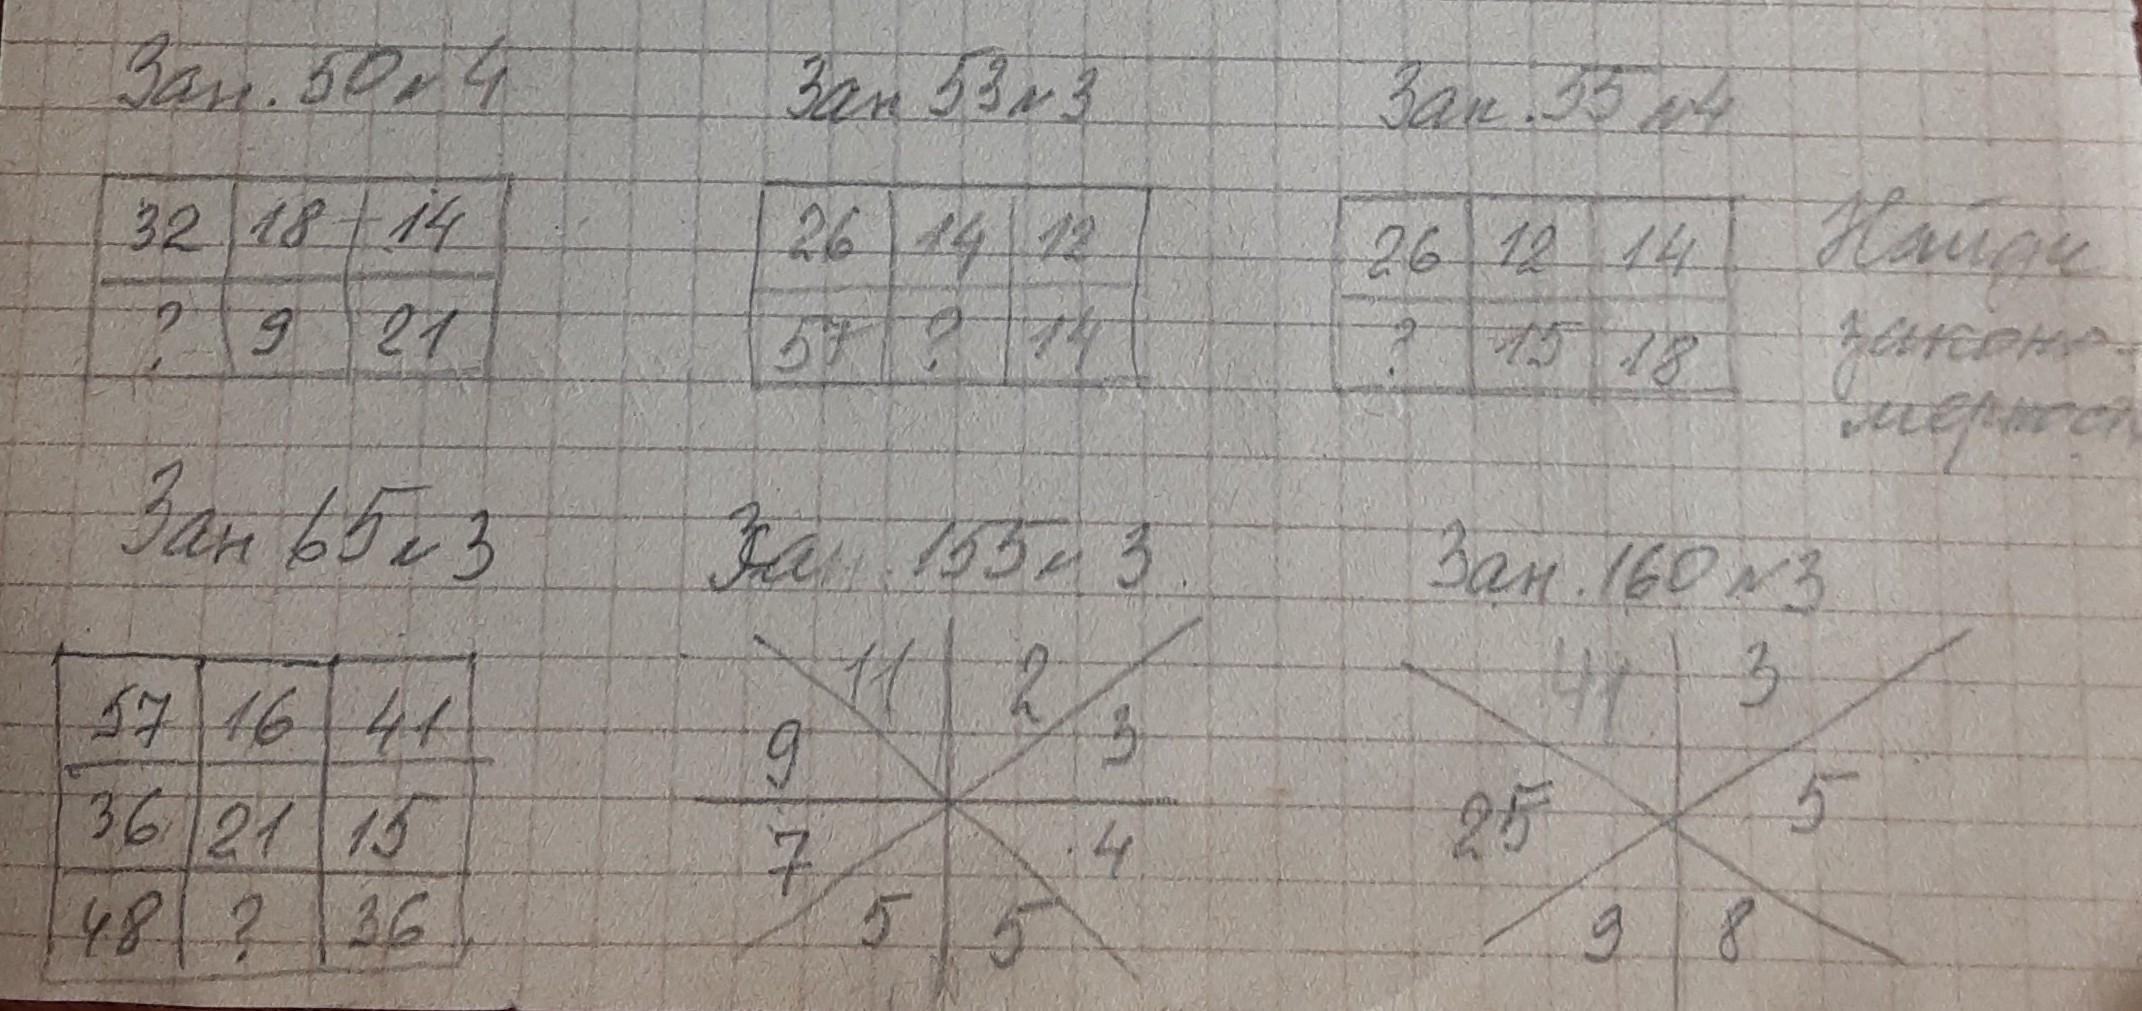 Зан. 50 н 4 Зан 53 н 3 Зан. 55 н 4
32 18 14 26 14 12 26 12 14 Найди
? 9 21 57 ? 14 ? 15 18 законо-
мерност
Зан 65 н 3 Зан. 155 н 3. Зан. 160 н 3
57 16 41 11 2 41 3
36 21 15 9 3 25 5
48 ? 36 7 4 9 8
5 5